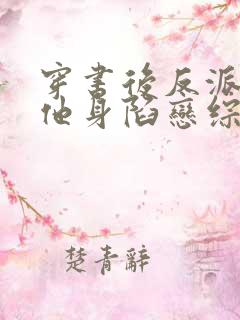 穿書後反派
他身陷戀綜
楚青辭